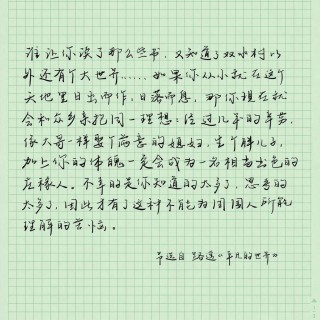 谁让你读了那么些书，又知道了双水村以
外还有个大世界……如果你从小就在这个
天地里日出而作，日落而息，那你现在就
会和众乡亲抱同一理想：经过几年的辛劳，
像大哥一样娶个满意的媳妇，生个胖儿子，
加上你的体魄一定会成为一名相当出色的
庄稼人。不幸的是你知道的太多了，思考的
太多了，因此才有了这种不能为周围人所能
理解的苦恼。
早 选自 路遥《平凡的世界》